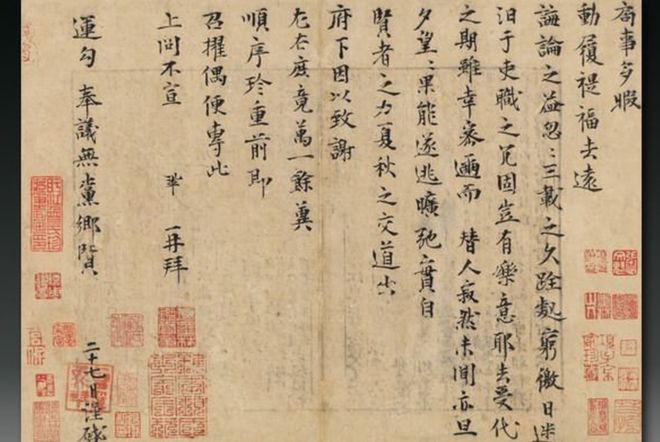 局事多暇
動履禔福去遠
誨論之益忽〻三載之久跧處窮徼日迷
汩于吏職之冗固豈有樂意耶去受代
之期雖幸密邇而替人寂然未聞亦旦
夕望〻果能遂逃曠弛實自
賢者之力夏秋之交道出
府下因以致謝
左右庶竟萬一餘冀
順序珍重前即
召擢偶便專此
上問不宣 鞏再拜
運勾奉議無黨鄉賢
二十七日謹